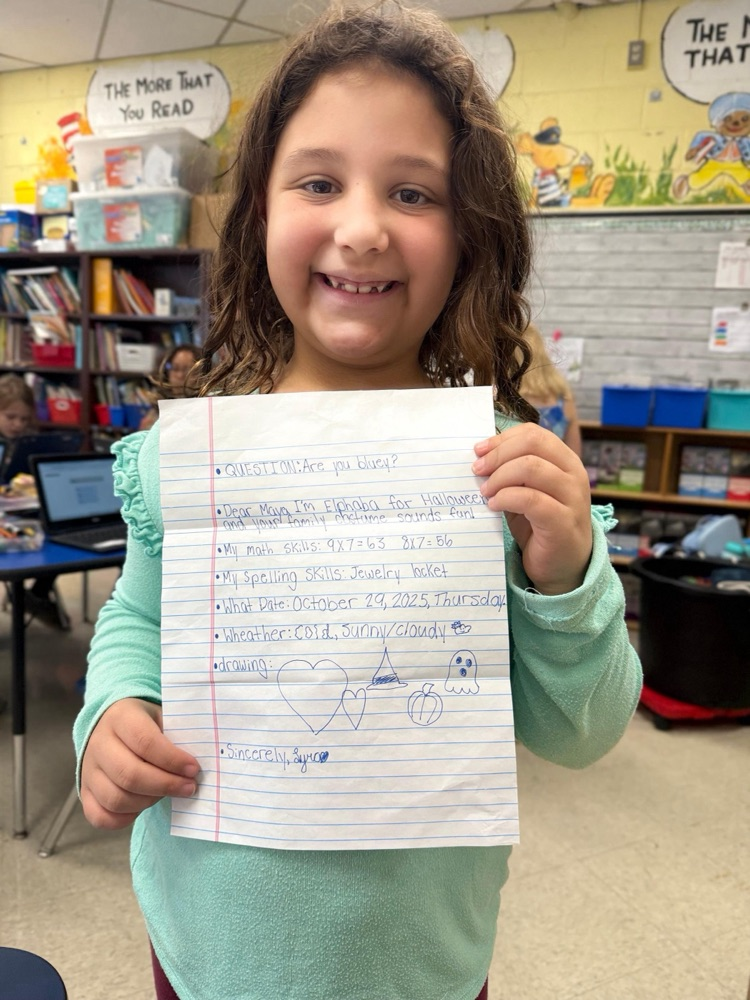 THE MORE THAT
YOU READ
THE M
THAT
• QUESTION: Are you bluey?
• Dear Maya I'm Elphaba for Halloween
and your family costume sounds fun!
• My math skills: 9x7=63 8x7=56
• My spelling skills: Jewelry locket
• What Date: October 29, 2025, Thursday
• Wheather: cold, sunny/cloudy
• drawing:
• Sincerely, Lyra